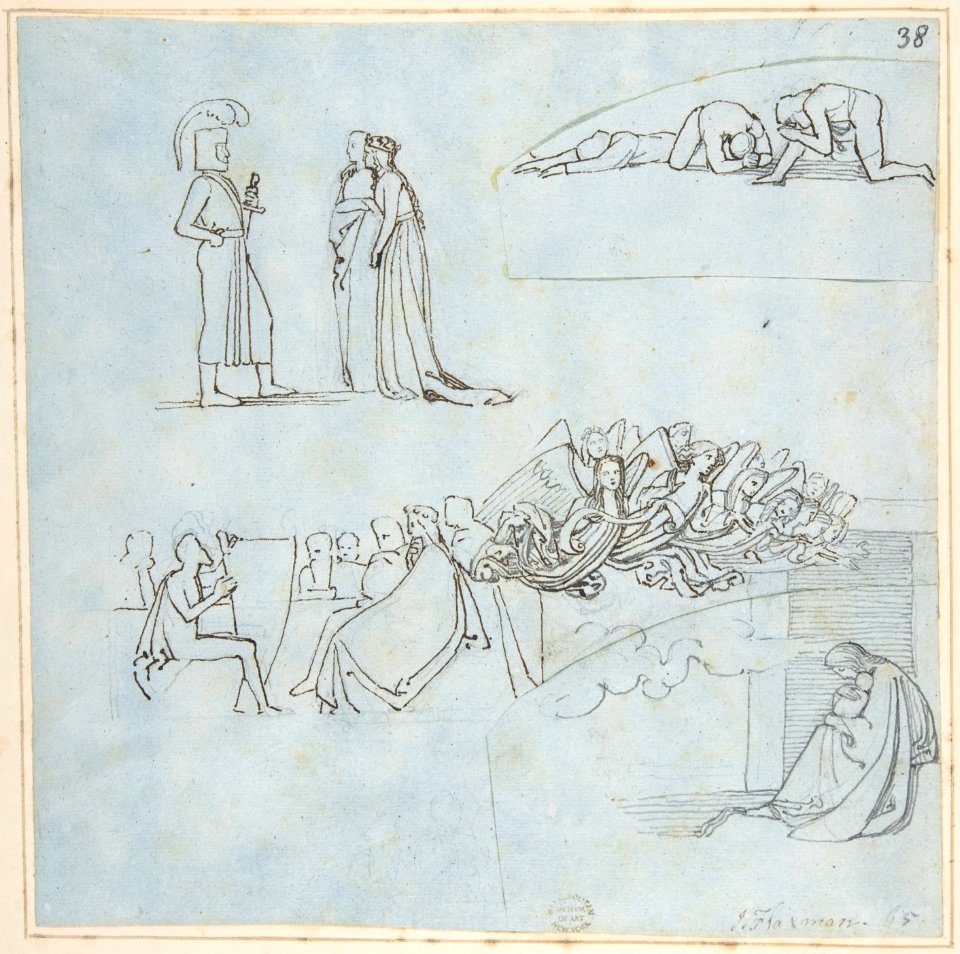 38
MUSEUM
OF ART
NEW YORK
J. Flaxman. 65.